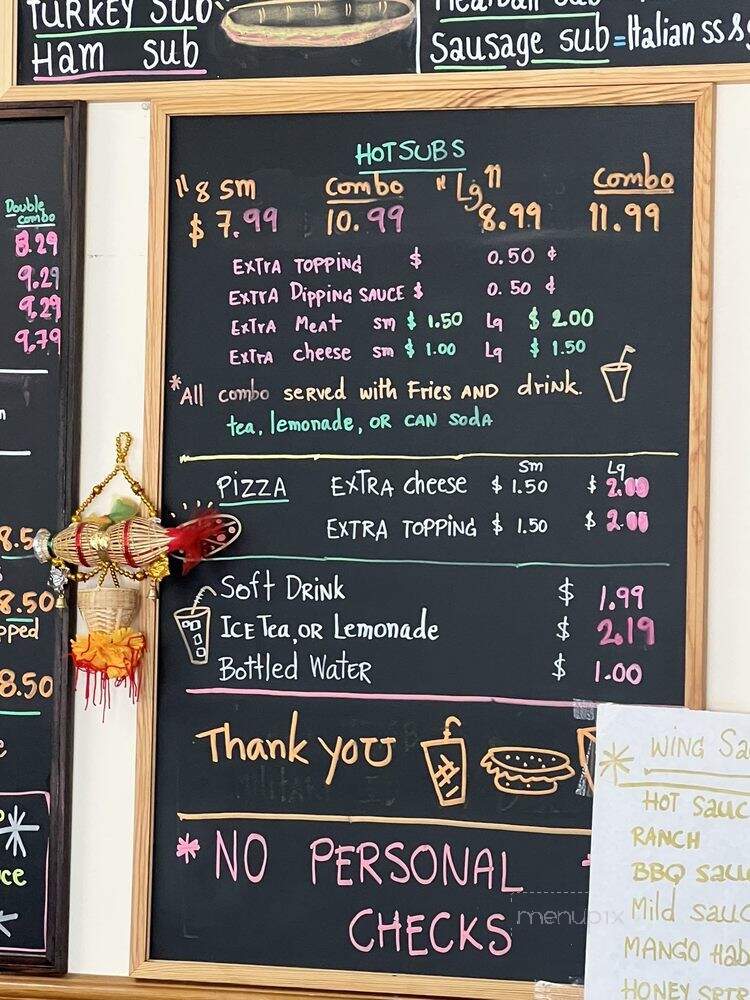 TURKEY SUB
HAM SUB
Sausage sub = Italian
Double combo
8.29
9.29
9.29
9.79
8.50
8.50
8.50
HOT SUBS
"8 SM Combo "Lg" Combo
$ 7.99 10.99 8.99 11.99
EXTRA TOPPING $ 0.50 ¢
EXTRA Dipping SAUCE $ 0.50 ¢
EXTRA Meat sm $ 1.50 Lg $ 2.00
EXTRA cheese sm $ 1.00 Lg $ 1.50
*All combo served with Fries AND drink.
tea, lemonade, OR CAN SODA
Sm Lg
PIZZA EXTRA cheese $ 1.50 $ 2.00
EXTRA TOPPING $ 1.50 $ 2.00
Soft DRINK $ 1.99
ICE Tea, OR Lemonade $ 2.19
Bottled Water $ 1.00
Thank you
* NO PERSONAL *
CHECKS
menupix
* WING
HOT
RANCH
BBQ
Mild
MANGO
HONEY